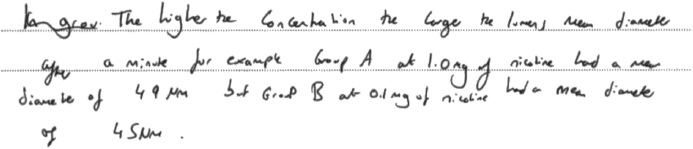 The higher the concentration the large the lumens mean diameter
after a minute for example Group A at 1.0mg of nicotine had a mean
diamete of 49 µm but Group B at 0.1mg of nicotine had a mean diamete
of 45µm.